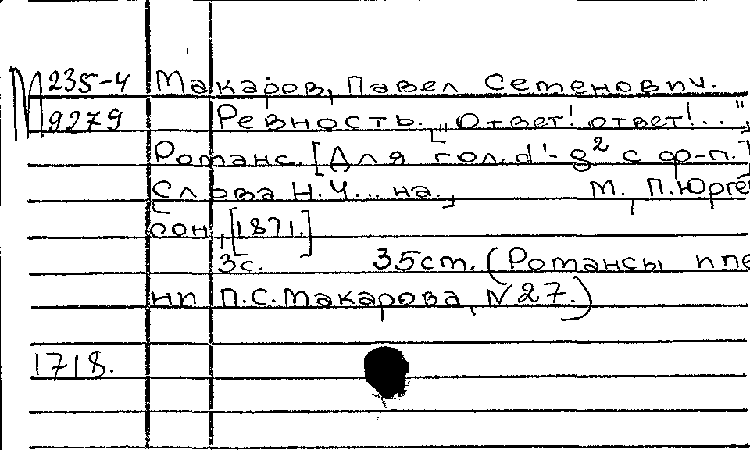 М 235-4 Макаров, Павел Семенович.
9279 Ревность. "Ответ! ответ!..."
Романс. [Для гол. d'-g² с ф-п.]
Слова Н.Ч...на. М., П. Юрген
сон, [1871.]
3с. 35ст. (Романсы и пе
ни П.С. Макарова, N 27.)
1718.